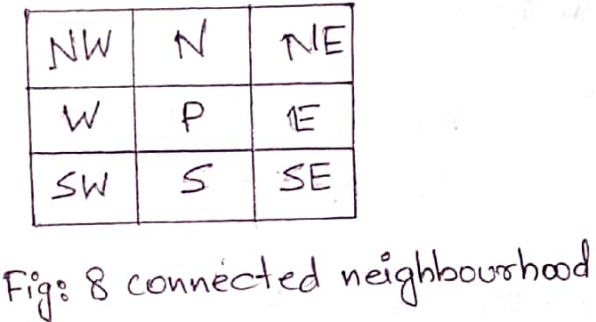 NW N NE
W P E
SW S SE
Fig: 8 connected neighbourhood